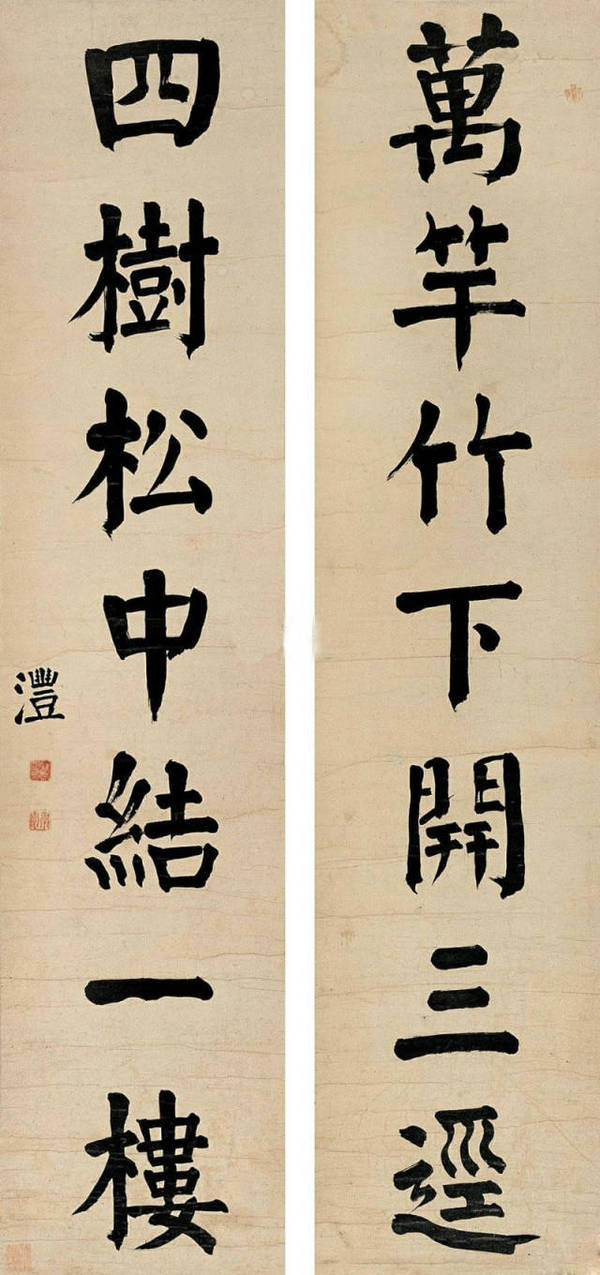 萬竿竹下開三逕
四樹松中結一樓
灃